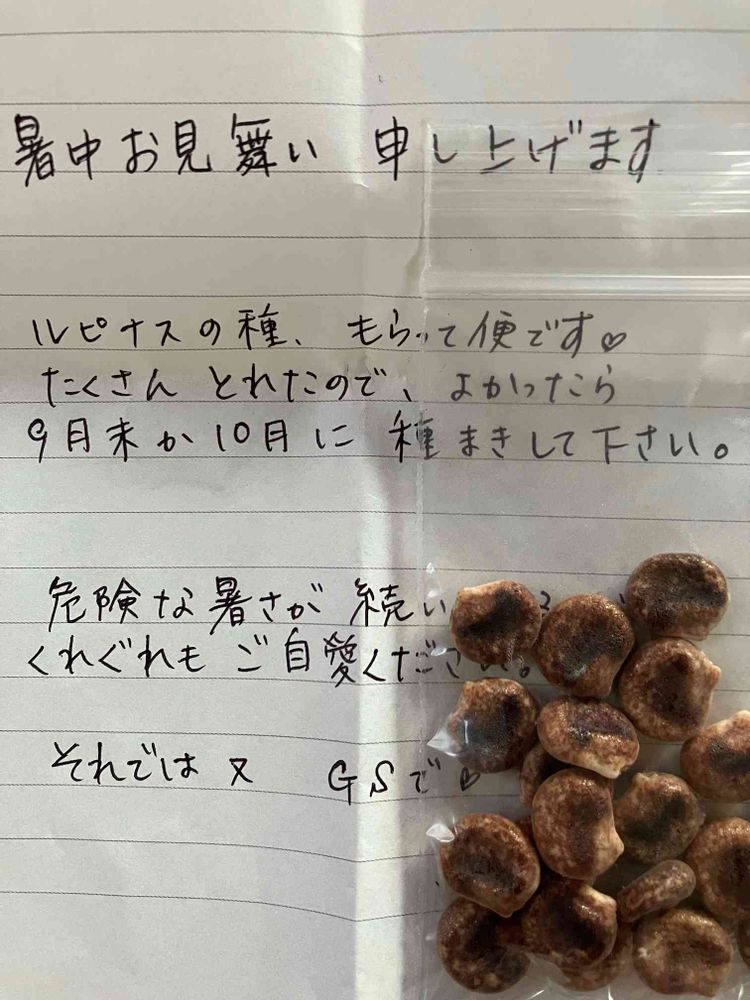 暑中お見舞い 申し上げます
ルピナスの種、もらって便です♡
たくさん とれたので、よかったら
9月末か10月に 種まきして下さい。
危険な暑さが 続い
くれぐれも ご自愛ください。
それでは又 GSで♡